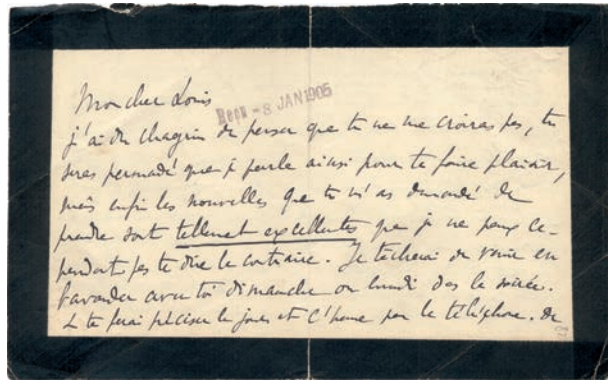 Mon cher Louis
Reçu - 8 JAN 1905
j'ai du chagrin de penser que tu ne me croiras pas, tu
seras persuadé que je parle ainsi pour te faire plaisir,
mais enfin les nouvelles que tu m'as demandé de
prendre sont tellement excellentes que je ne peux ce-
pendant pas te dire le contraire. Je tâcherai de venir en
bavarder avec toi dimanche ou lundi dans la soirée.
te ferai préciser le jour et l'heure par le téléphone. De